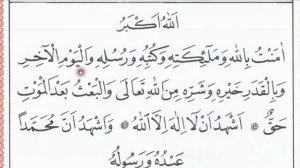 اَللهُ اَكْبَرُ
اٰمَنْتُ بِاللهِ وَمَلٰٓئِكَتِهِ وَكُتُبِهِ وَرُسُلِهِ وَالْيَوْمِ الْاٰخِرِ
وَبِالْقَدَرِ خَيْرِهِ وَشَرِّهِ مِنَ اللهِ تَعَالٰى وَالْبَعْثُ بَعْدَ الْمَوْتِ
حَقٌّ ۞ اَشْهَدُ اَنْ لَا اِلٰهَ اِلَّا اللهُ ۞ وَاَشْهَدُ اَنَّ مُحَمَّدًا
عَبْدُهُ وَرَسُولُهُ